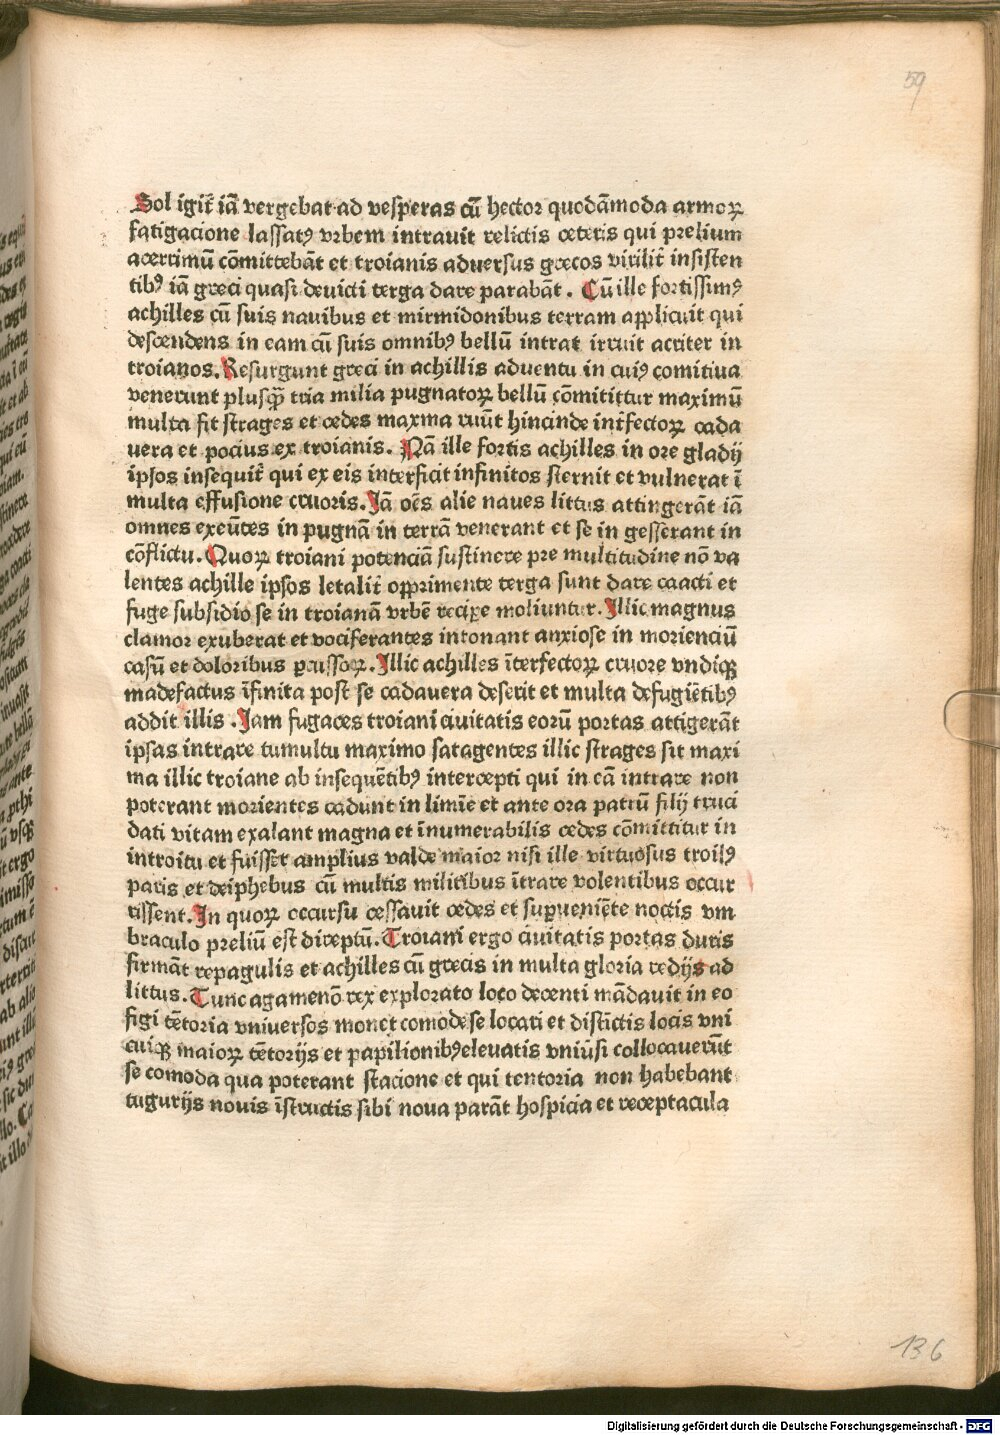 59
Sol igit̄ iā vergebat ad vesperas cū hector quodāmodo armoꝝ
fatigacione lassatꝰ vrbem intrauit relictis ceteris qui prelium
acerrimū cōmittebāt et troianis aduersus grecos virilit̄ insisten
tibꝰ iā greci quasi deuicti terga dare parabāt. Cū ille fortissimꝰ
achilles cū suis nauibus et mirmidonibus terram applicuit qui
descendens in eam cū suis omnibꝰ bellū intrat irruit acriter in
troianos. Resurgunt greci in achillis aduentu in cuiꝰ comitiua
venerunt plusꝙ̄ tria milia pugnatoꝝ bellū cōmittitur maximū
multa fit strages et cedes maxma ruūt hincinde int̄fectoꝝ cada
uera et pocius ex troianis. Nā ille fortis achilles in ore gladij
ipsos insequit̄ qui ex eis interficit infinitos sternit et vulnerat ī
multa effusione cruoris. Iā oēs alie naues littus attingerāt iā
omnes exeūtes in pugnā in terrā venerant et se in gesserant in
cōflictu. Quoꝝ troiani potenciā sustinere pre multitudine nō va
lentes achille ipsos letalit̄ opprimente terga sunt dare coacti et
fuge subsidio se in troianā vrbē reciꝑe moliuntur. Illic magnus
clamor exuberat et vociferantes intonant anxiose in morienciū
casū et doloribus ꝑcussoꝝ. Illic achilles īterfectoꝝ cruore vndiqꝫ
madefactus īfinita post se cadauera deserit et multa defugiētibꝰ
addit illis. Iam fugaces troiani ciuitatis eorū portas attigerāt
ipsas intrare tumultu maximo satagentes illic strages fit maxi
ma illic troiane ab insequētibꝰ intercepti qui in eā intrare non
poterant morientes cadunt in limīe et ante ora patrū filij truci
dati vitam exalant magna et īnumerabilis cedes cōmittitur in
introitu et fuisset̄ amplius valde maior nisi ille virtuosus troilꝰ
paris et deiphebus cū multis militibus ītrare volentibus occur
rissent. In quoꝝ occursu cessauit cedes et suꝑueniēte noctis vm
braculo preliū est direptū. Troiani ergo ciuitatis portas duris
firmāt repagulis et achilles cū grecis in multa gloria redijs ad
littus. Tunc agamenō rex explorato loco decenti mādauit in eo
figi tētoria vniuersos monet comode se locari et distīctis locis vni
cuiqꝫ maioꝝ tētorijs et papilionibꝰ eleuatis vniūsi collocauerūt
se comoda qua poterant stacione et qui tentoria non habebant
tugurijs nouis īstructis sibi noua parāt hospicia et receptacula
136
Digitalisierung gefördert durch die Deutsche Forschungsgemeinschaft - DFG